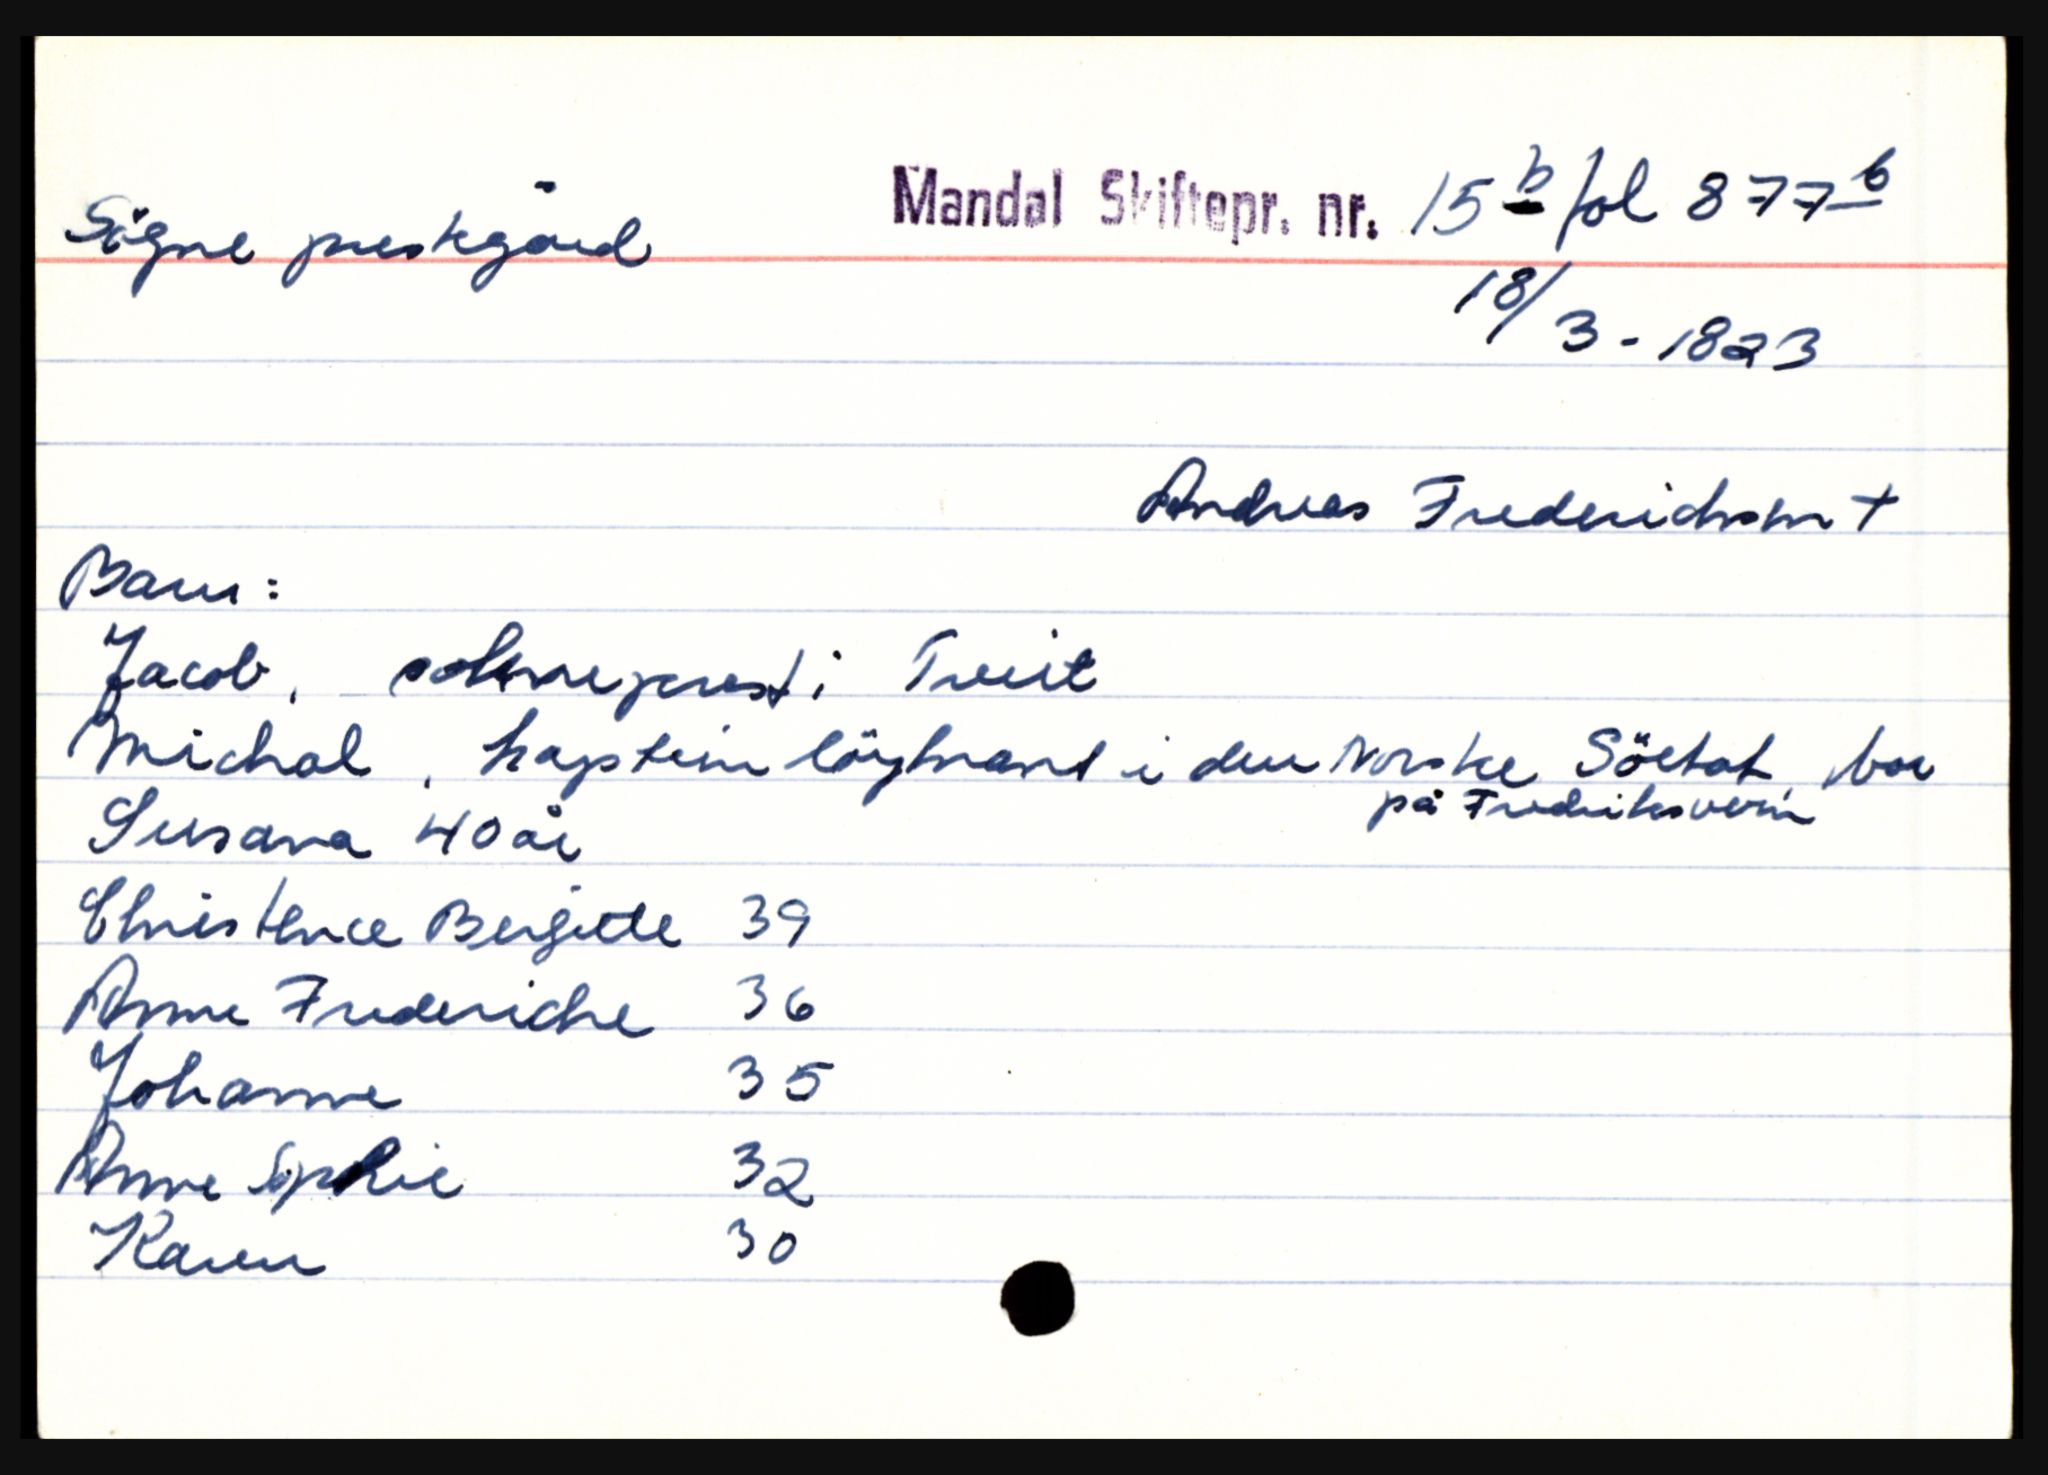 Sögne prestgård
Mandal Skiftepr. nr. 15 b fol 877 b
18/3 - 1823
Andreas Frederichsen +
Barn:
Jacob, sokneprest i Tveit
Michal, kaptein löytnant i den Norske Söetat, bor
på Fredriksvern
Susana 40 år
Christence Bergitte 39
Anne Frederiche 36
Johanne 35
Anne Sophie 32
Karen 30